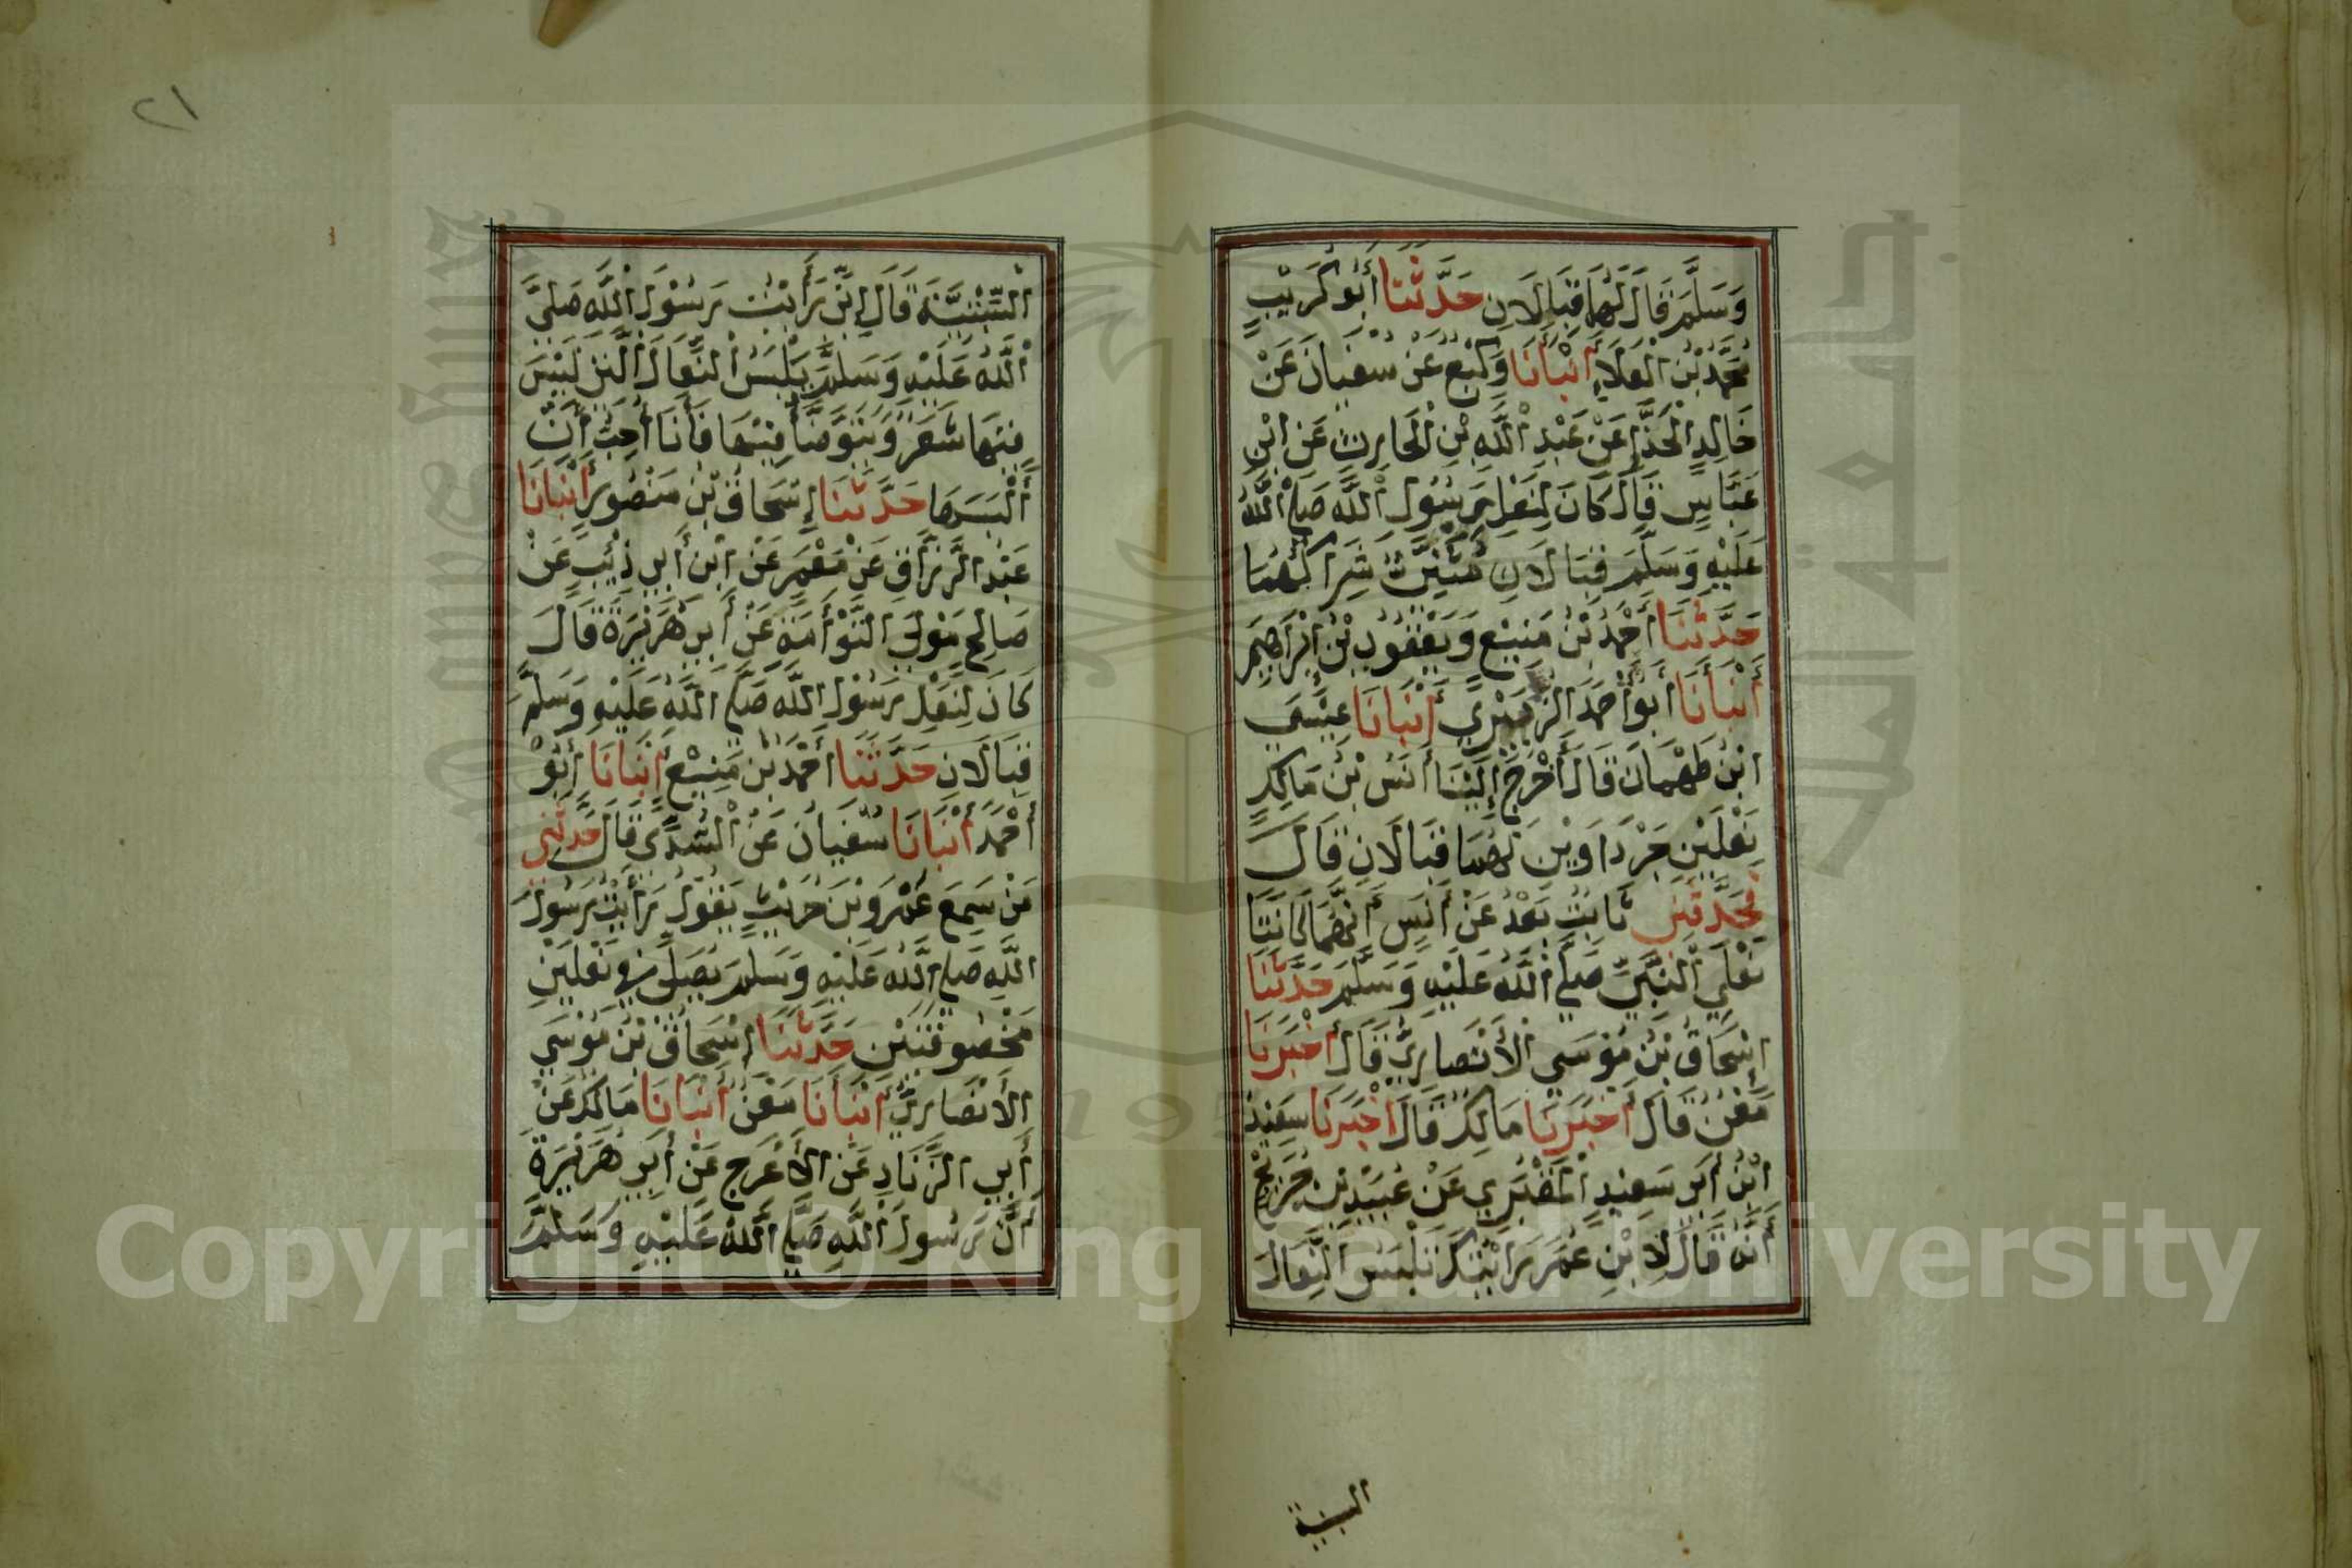 وَسَلَّمَ قَالَ لَهُمَا قِبَالَانِ حَدَّثَنَا أَبُو كُرَيْبٍ
مُحَمَّدُ بْنُ الْعَلَاءِ أَنْبَأَنَا وَكِيْعٌ عَنْ سُفْيَانَ عَنْ
خَالِدٍ الْحَذَّاءِ عَنْ عَبْدِ اللَّهِ بْنِ الْحَارِثِ عَنِ ابْنِ
عَبَّاسٍ قَالَ كَانَ لِنَعْلِ رَسُولِ اللَّهِ صَلَّى اللَّهُ
عَلَيْهِ وَسَلَّمَ قِبَالَانِ مُثَنَّيٌ شِرَاكُهُمَا
حَدَّثَنَا أَحْمَدُ بْنُ مَنِيْعٍ وَيَعْقُوبُ بْنُ إِبْرَاهِيمَ
أَنْبَأَنَا أَبُو أَحْمَدَ الزُّبَيْرِي أَنْبَأَنَا عِيْسَى
ابْنُ طَهْمَانَ قَالَ أَخْرَجَ إِلَيْنَا أَنَسُ بْنُ مَالِكٍ
نَعْلَيْنِ جَرْدَاوَيْنِ لَهُمَا قِبَالَانِ قَالَ
فَحَدَّثَنِي ثَابِتٌ بَعْدُ عَنْ أَنَسٍ أَنَّهُمَا كَانَتَا
نَعْلَيِ النَّبِيِّ صَلَّى اللَّهُ عَلَيْهِ وَسَلَّمَ حَدَّثَنَا
إِسْحَاقُ بْنُ مُوْسَى الْأَنْصَارِيُّ قَالَ أَخْبَرَنَا
مَعْنٌ قَالَ أَخْبَرَنَا مَالِكٌ قَالَ أَخْبَرَنَا سَعِيْدُ
ابْنُ أَبِي سَعِيْدٍ الْمَقْبُرِي عَنْ عُبَيْدِ بْنِ جُرَيْجٍ
أَنَّهُ قَالَ لِابْنِ عُمَرَ رَأَيْتُكَ تَلْبَسُ النِّعَالَ
السبتية
٢١
السِّبْتِيَّةَ قَالَ إِنِّي رَأَيْتُ رَسُوْلَ اللَّهِ صَلَّى
اللَّهُ عَلَيْهِ وَسَلَّمَ يَلْبَسُ النِّعَالَ الَّتِي لَيْسَ
فِيْهَا شَعَرٌ وَيَتَوَضَّأُ فِيْهَا فَأَنَا أُحِبُّ أَنْ
أَلْبَسَهَا حَدَّثَنَا إِسْحَاقُ بْنُ مَنْصُورٍ أَنْبَأَنَا
عَبْدُ الرَّزَّاقِ عَنْ مَعْمَرٍ عَنْ ابْنِ أَبِي ذِئْبٍ عَنْ
صَالِحٍ مَوْلَى التَّوْأَمَةِ عَنْ أَبِي هُرَيْرَةَ قَالَ
كَانَ لِنَعْلِ رَسُوْلِ اللَّهِ صَلَّى اللَّهُ عَلَيْهِ وَسَلَّمَ
قِبَالَانِ حَدَّثَنَا أَحْمَدُ بْنُ مَنِيْعٍ أَنْبَأَنَا أَبُوْ
أَحْمَدَ أَنْبَأَنَا سُفْيَانُ عَنِ السُّدِّيِّ قَالَ حَدَّثَنِي
مَنْ سَمِعَ عَمْرَو بْنَ حُرَيْثٍ يَقُوْلُ رَأَيْتُ رَسُوْلَ
اللَّهِ صَلَّى اللَّهُ عَلَيْهِ وَسَلَّمَ يُصَلِّي فِي نَعْلَيْنِ
مَخْصُوْفَتَيْنِ حَدَّثَنَا إِسْحَاقُ بْنُ مُوْسَى
الْأَنْصَارِيُّ أَنْبَأَنَا مَعْنٌ أَنْبَأَنَا مَالِكٌ عَنْ
أَبِي الزِّنَادِ عَنِ الْأَعْرَجِ عَنْ أَبِي هُرَيْرَةَ
أَنَّ رَسُولَ اللَّهِ صَلَّى اللَّهُ عَلَيْهِ وَسَلَّمَ
Copyright © King Saud University